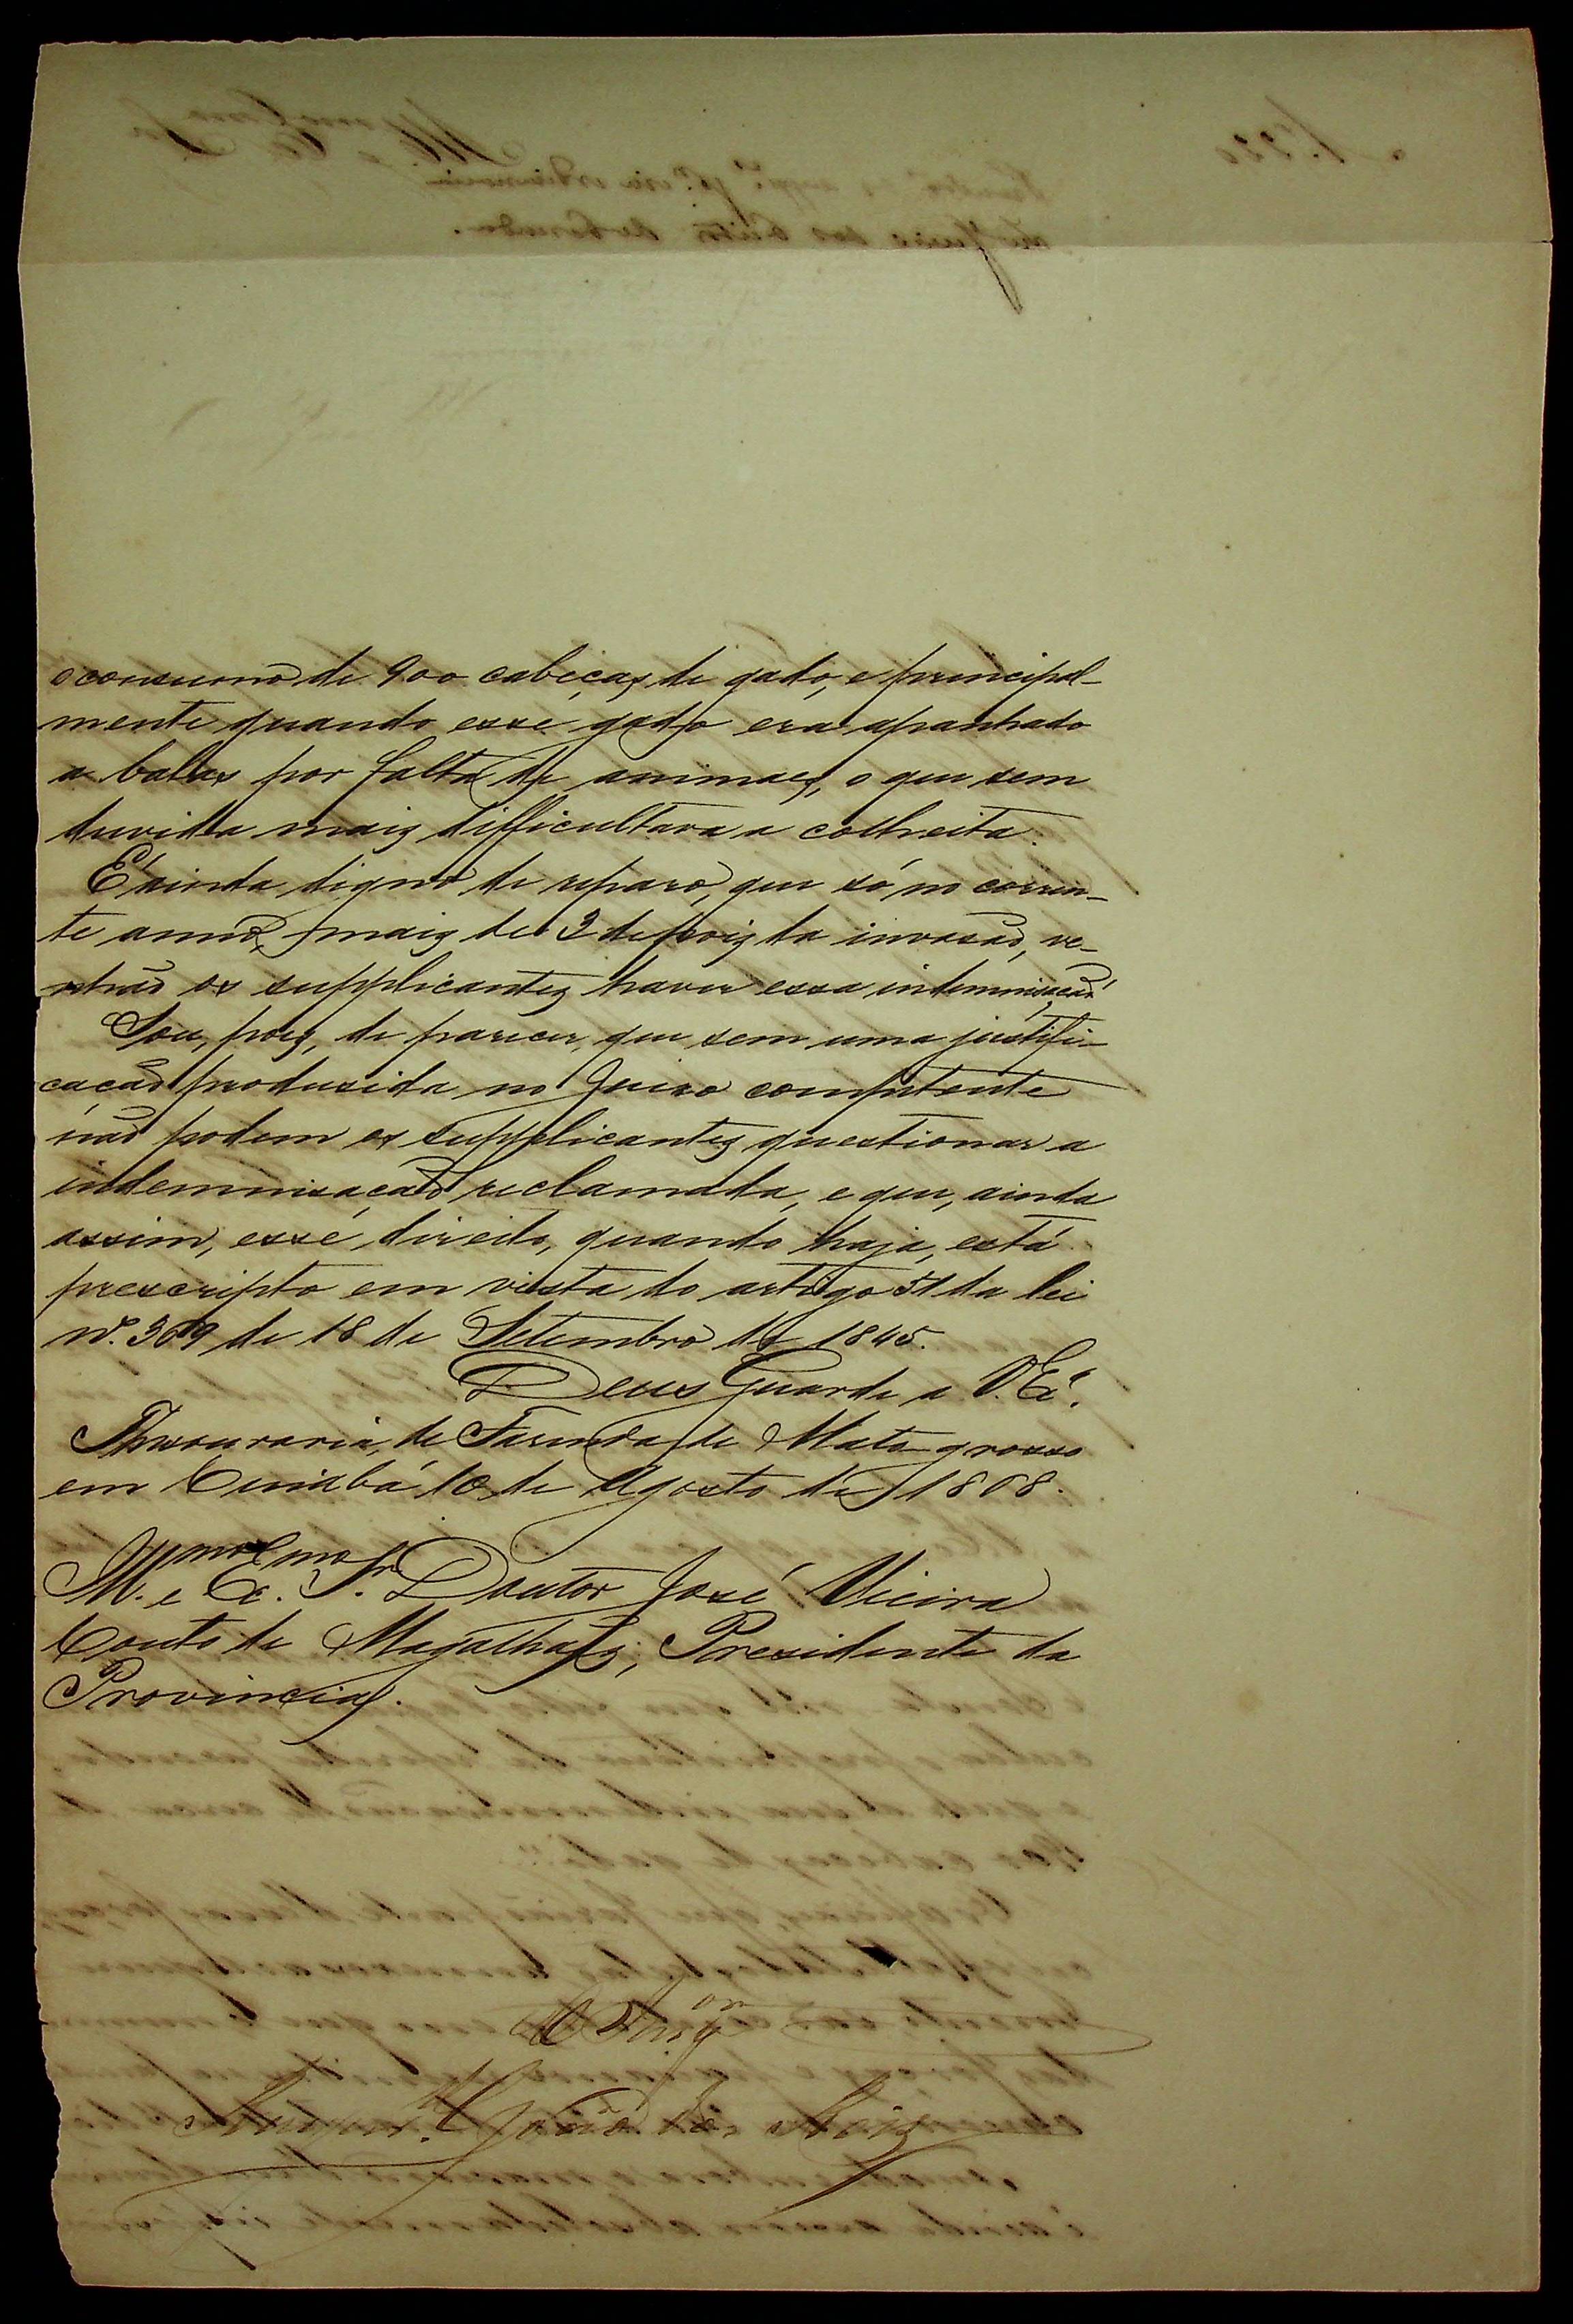 o consumo de 900 cabeças de gado, e principal-
mente quando esse gado era apanhado
a balas por falta de animaes, o que sem
duvida mais difficultava a colheita.
É ainda digno de reparo, que só no corren-
te anno, mais de 3 depois da invasão, ve-
nhão os supplicantes haver essa indemnisação
Sou, pois, de parecer, que sem uma justifi-
cação produsida no Juiso competente
não podem os supplicantes questionar a
indemnisação reclamada, e que, ainda
assim, esse direito, quando haja, está
prescripto em vista do artigo 51 da lei
nº. 369 de 18 de Setembro de 1845.
Deus Guarde a V. Exª.
Thesouraria de Fasenda de Mato grosso
em Cuiabá 10 de Agosto de 1868.
Illmo. e Exmo. Sr. Doutor José Vieira
Couto de Magalhães, Presidente da
Provincia.
O